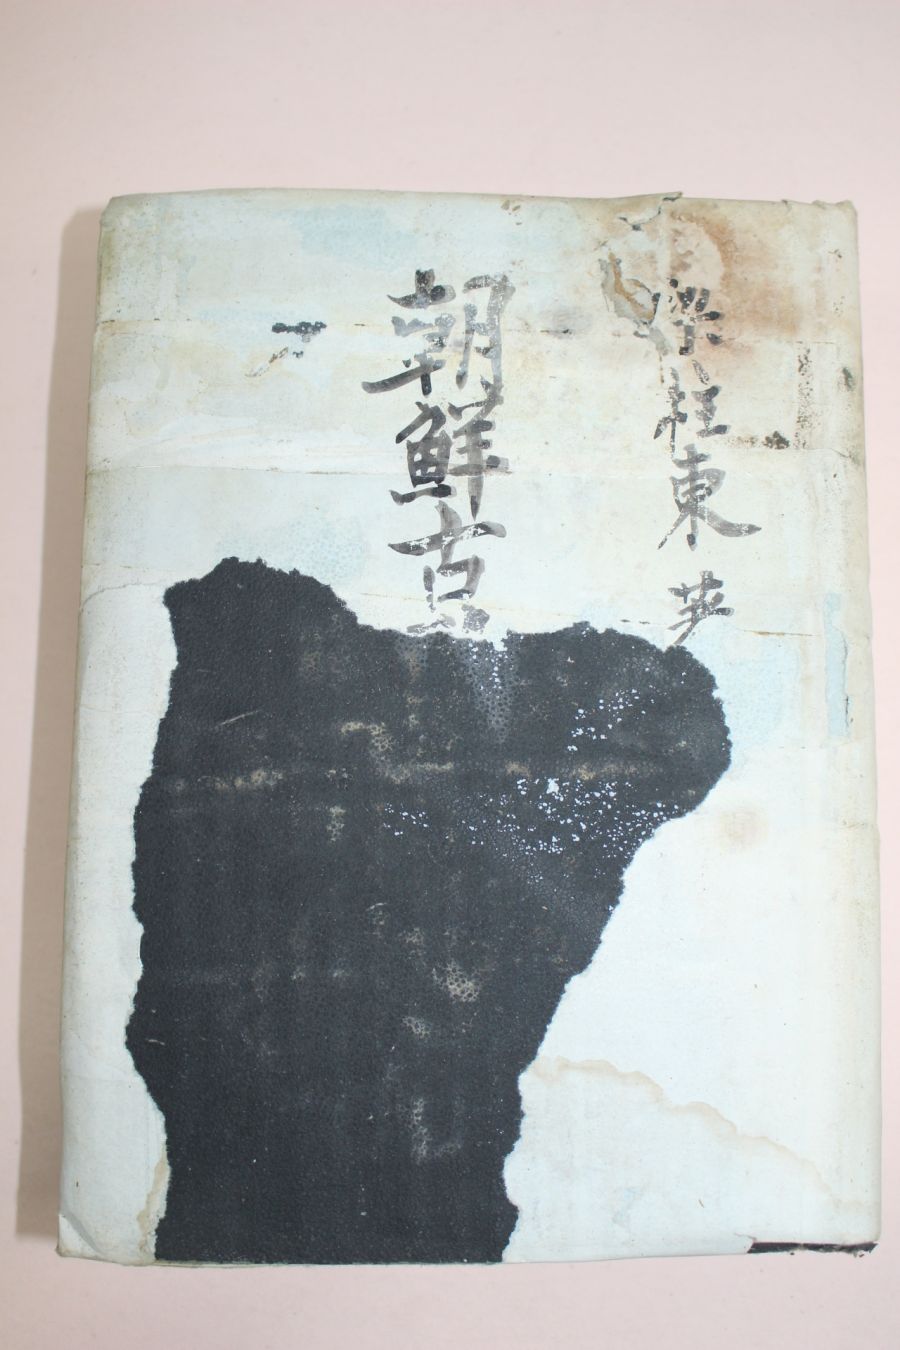 梁柱東 著
朝鮮古